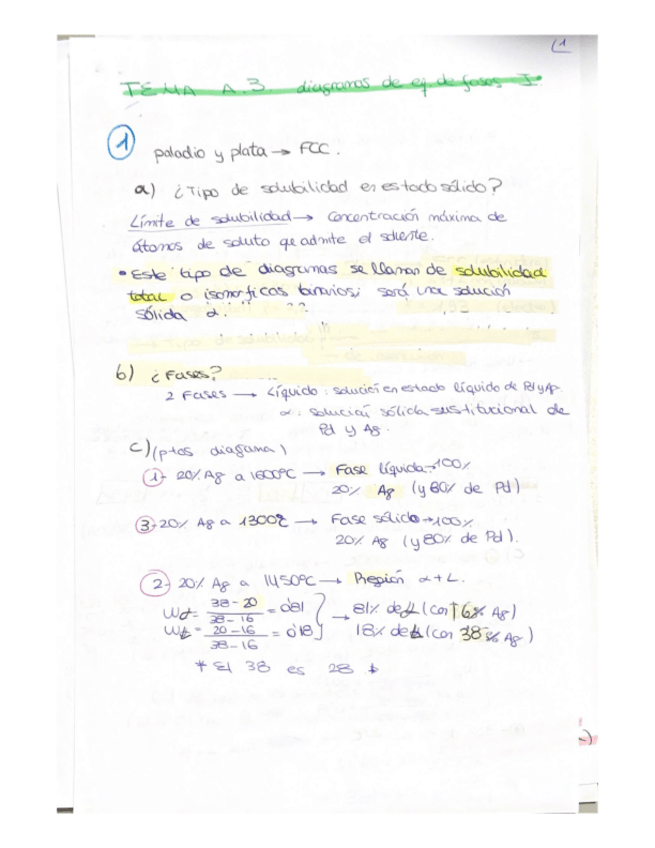 (1
TEMA A.3. diagramas de eq. de fases I.
1 paladio y plata → FCC.
a) ¿Tipo de solubilidad en estado sólido?
Límite de solubilidad → Concentración máxima de
átomos de soluto que admite el
• Este tipo de diagramas se llaman de solubilidad
total o isomorficas binarios; será una solución
sólida α.
b) ¿Fases?
2 Fases → Líquido: solución en estado líquido de Pd y Ag.
α: solución sólida sustitucional de
Pd y Ag.
c) (ptos diagrama)
1- 20% Ag a 1600ºC → Fase líquida → 100%
20% Ag (y 80% de Pd)
3- 20% Ag a 1300ºC → Fase sólido → 100%
20% Ag (y 80% de Pd).
2- 20% Ag a 1450ºC → Región α + L.
Wα = 38 - 20 / 38 - 16 = 0'81 → 81% de α (con 16% Ag)
WL = 20 - 16 / 38 - 16 = 0'18 18% de L (con 38% Ag)
* El 38 es 28 *